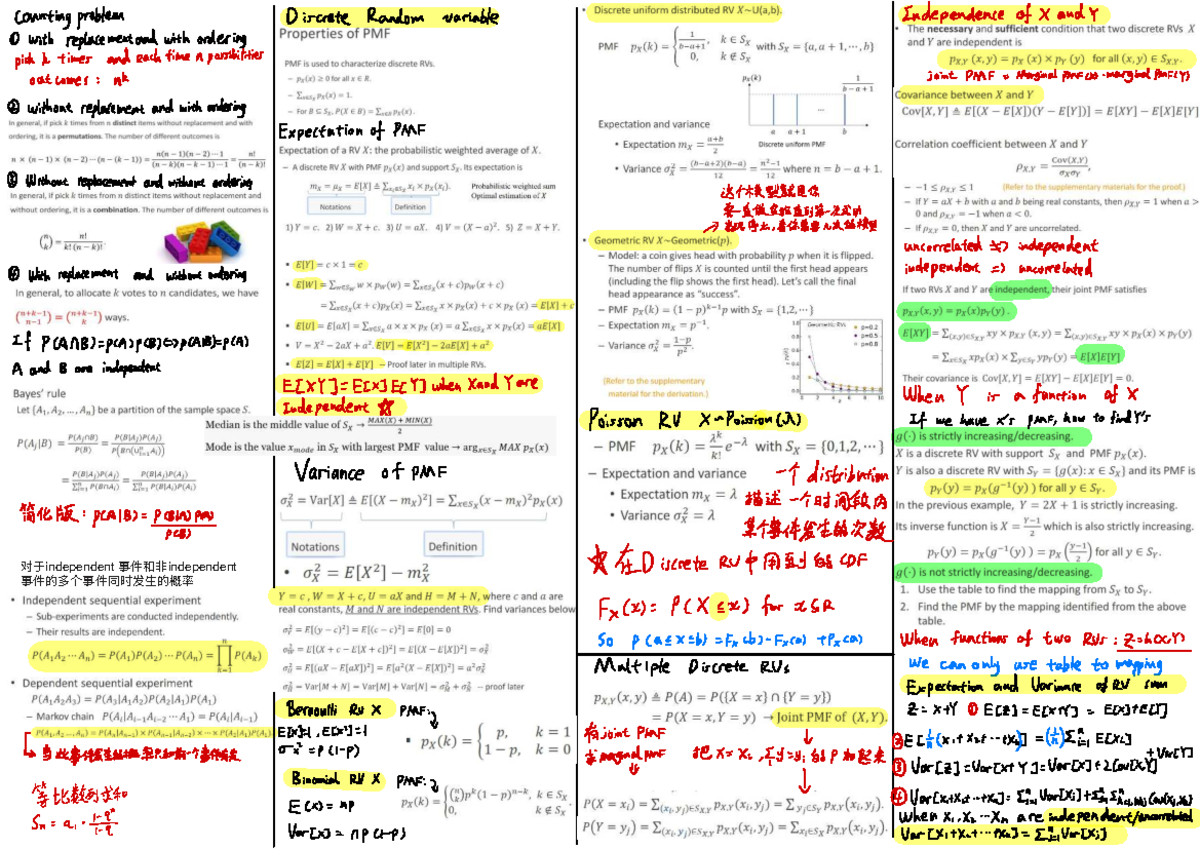 Counting problem
① with replacement and with ordering
pick k times and each time n possibilities
outcomes : nk
② without replacement and with ordering
In general, if pick k times from n distinct items without replacement and with
ordering, it is a permutations. The number of different outcomes is
n × (n − 1) × (n − 2) ⋯ (n − (k − 1)) = n(n−1)(n−2)⋯1 / (n−k)(n−k−1)⋯1 = n!/(n−k)!
③ Without replacement and without ordering
In general, if pick k times from n distinct items without replacement and
without ordering, it is a combination. The number of different outcomes is
(n k) = n!/k!(n−k)!
④ With replacement and without ordering
In general, to allocate k votes to n candidates, we have
(n+k−1 n−1) = (n+k−1 k) ways.
If P(A∩B)=P(A)P(B)⇔P(A|B)=P(A)
A and B are independent
Bayes' rule
Let {A₁, A₂, …, Aₙ} be a partition of the sample space S.
P(Aⱼ|B) = P(Aⱼ∩B)/P(B) = P(B|Aⱼ)P(Aⱼ)/P(B∩(∪ⁿᵢ₌₁Aᵢ))
= P(B|Aⱼ)P(Aⱼ)/Σⁿᵢ₌₁P(B∩Aᵢ) = P(B|Aⱼ)P(Aⱼ)/Σⁿᵢ₌₁P(B|Aᵢ)P(Aᵢ)
简化版: P(A|B) = P(B|A)P(A)/P(B)
对于independent 事件和非independent
事件的多个事件同时发生的概率
• Independent sequential experiment
– Sub-experiments are conducted independently.
– Their results are independent.
P(A₁A₂ ⋯ Aₙ) = P(A₁)P(A₂) ⋯ P(Aₙ) = ∏ⁿₖ₌₁ P(Aₖ)
• Dependent sequential experiment
P(A₁A₂A₃) = P(A₃|A₁A₂)P(A₂|A₁)P(A₁)
– Markov chain P(Aᵢ|Aᵢ₋₁Aᵢ₋₂ ⋯ A₁) = P(Aᵢ|Aᵢ₋₁)
P(A₁A₂, …, Aₙ) = P(Aₙ|Aₙ₋₁) × P(Aₙ₋₁|Aₙ₋₂) × ⋯ × P(A₂|A₁)P(A₁).
等比数列求和
Sₙ = a₁ · (1−qⁿ)/(1−q)
Discrete Random variable
Properties of PMF
PMF is used to characterize discrete RVs.
– pₓ(x) ≥ 0 for all x ∈ R.
– Σₓ∈Sₓ pₓ(x) = 1.
– For B ⊆ Sₓ, P(X ∈ B) = Σₓ∈B pₓ(x).
Expectation of PMF
Expectation of a RV X: the probabilistic weighted average of X.
– A discrete RV X with PMF pₓ(x) and support Sₓ. Its expectation is
mₓ = μₓ = E[X] ≜ Σₓᵢ∈Sₓ xᵢ × pₓ(xᵢ). Probabilistic weighted sum
Optimal estimation of X
Notations Definition
1) Y = c. 2) W = X + c. 3) U = aX. 4) V = (X − a)². 5) Z = X + Y.
• E[Y] = c × 1 = c
• E[W] = Σw∈Sw w × pw(w) = Σₓ∈Sₓ(x + c)pw(x + c)
= Σₓ∈Sₓ(x + c)pₓ(x) = Σₓ∈Sₓ x × pₓ(x) + c × pₓ(x) = E[X] + c
• E[U] = E[aX] = Σₓ∈Sₓ a × x × pₓ(x) = a Σₓ∈Sₓ x × pₓ(x) = aE[X]
• V = X² − 2aX + a². E[V] = E[X²] − 2aE[X] + a²
• E[Z] = E[X] + E[Y] – Proof later in multiple RVs.
E[XY]=E[X]E[Y] when X and Y are
Independent ☆
Median is the middle value of Sₓ → MAX(X)+MIN(X)/2
Mode is the value x_mode in Sₓ with largest PMF value → argₓ∈Sₓ MAX pₓ(x)
Variance of PMF
σₓ² = Var[X] ≜ E[(X − mₓ)²] = Σₓ∈Sₓ(x − mₓ)²pₓ(x)
Notations Definition
• σₓ² = E[X²] − mₓ²
Y = c, W = X + c, U = aX and H = M + N, where c and a are
real constants, M and N are independent RVs. Find variances below
σ_Y² = E[(y − c)²] = E[(c − c)²] = E[0] = 0
σ_W² = E[(X + c − E[X + c])²] = E[(X − E[X])²] = σₓ²
σ_U² = E[(aX − E[aX])²] = E[a²(X − E[X])²] = a²σₓ²
σ_H² = Var[M + N] = Var[M] + Var[N] = σ_M² + σ_N² – proof later
Bernoulli RV X PMF:
σₓ² = P(1-P)
• pₓ(k) = { p, k = 1
1 − p, k = 0
Binomial RV X PMF:
E(X) = np
pₓ(k) = { (n k)pᵏ(1 − p)ⁿ⁻ᵏ, k ∈ Sₓ
0, k ∉ Sₓ.
Var[X] = np(1-p)
• Discrete uniform distributed RV X~U(a,b).
PMF pₓ(k) = { 1/(b−a+1), k ∈ Sₓ
0, k ∉ Sₓ with Sₓ = {a, a + 1, ⋯, b}
pₓ(k)
1/(b − a + 1)
...
a a + 1 b
Discrete uniform PMF
Expectation and variance
• Expectation mₓ = (a+b)/2
• Variance σₓ² = (b−a+2)(b−a)/12 = (n²−1)/12 where n = b − a + 1.
• Geometric RV X~Geometric(p).
– Model: a coin gives head with probability p when it is flipped.
The number of flips X is counted until the first head appears
(including the flip shows the first head). Let's call the final
head appearance as "success".
– PMF pₓ(k) = (1 − p)ᵏ⁻¹p with Sₓ = {1,2, ⋯}
– Expectation mₓ = p⁻¹.
– Variance σₓ² = (1−p)/p².
Geometric RVs
p=0.2
p=0.5
p=0.8
(Refer to the supplementary
material for the derivation.)
Poisson RV X~Poission(λ)
– PMF pₓ(k) = λᵏ/k! e⁻λ with Sₓ = {0,1,2, ⋯}
– Expectation and variance
• Expectation mₓ = λ
• Variance σₓ² = λ
一个 distribution
描述一个时间段内
某个事件发生的次数
☆ 在Discrete RV中用到的 CDF
Fₓ(x) = P(X ≤ x) for x∈R
So P(a≤X≤b) = Fₓ(b) - Fₓ(a) + Pₓ(a)
Multiple Discrete RVs
p_X,Y(x, y) ≜ P(A) = P({X = x} ∩ {Y = y})
= P(X = x, Y = y) → Joint PMF of (X, Y).
有joint PMF
求marginal PMF
P(X = xᵢ) = Σ(xᵢ,yⱼ)∈S_X,Y p_X,Y(xᵢ, yⱼ) = Σyⱼ∈S_Y p_X,Y(xᵢ, yⱼ).
P(Y = yⱼ) = Σ(xᵢ,yⱼ)∈S_X,Y p_X,Y(xᵢ, yⱼ) = Σxᵢ∈Sₓ p_X,Y(xᵢ, yⱼ).
Independence of X and Y
• The necessary and sufficient condition that two discrete RVs X
and Y are independent is
p_X,Y(x, y) = pₓ(x) × p_Y(y) for all(x, y) ∈ S_X,Y.
joint PMF = Marginal PMF(X)·marginal PMF(Y)
Covariance between X and Y
Cov[X, Y] ≜ E[(X − E[X])(Y − E[Y])] = E[XY] − E[X]E[Y]
Correlation coefficient between X and Y
ρ_X,Y = Cov(X,Y)/σₓσ_Y,
– −1 ≤ ρ_X,Y ≤ 1 (Refer to the supplementary materials for the proof.)
– If Y = aX + b with a and b being real constants, then ρ_X,Y = 1 when a >
0 and ρ_X,Y = −1 when a < 0.
– If ρ_X,Y = 0, then X and Y are uncorrelated.
uncorrelated ≠> independent
independent => uncorrelated
If two RVs X and Y are independent, their joint PMF satisfies
p_X,Y(x, y) = pₓ(x)p_Y(y).
E[XY] = Σ(x,y)∈S_X,Y xy × p_X,Y(x, y) = Σ(x,y)∈S_X,Y xy × pₓ(x) × p_Y(y)
= Σx∈Sₓ xpₓ(x) × Σy∈S_Y yp_Y(y) = E[X]E[Y]
Their covariance is Cov[X, Y] = E[XY] − E[X]E[Y] = 0.
When Y is a function of X
If we have x's PMF, how to find Y's
g(·) is strictly increasing/decreasing.
X is a discrete RV with support Sₓ and PMF pₓ(x).
Y is also a discrete RV with S_Y = {g(x): x ∈ Sₓ} and its PMF is
p_Y(y) = pₓ(g⁻¹(y)) for all y ∈ S_Y.
In the previous example, Y = 2X + 1 is strictly increasing.
Its inverse function is X = (Y−1)/2 which is also strictly increasing.
p_Y(y) = pₓ(g⁻¹(y)) = pₓ((y−1)/2) for all y ∈ S_Y.
g(·) is not strictly increasing/decreasing.
1. Use the table to find the mapping from Sₓ to S_Y.
2. Find the PMF by the mapping identified from the above
table.
When functions of two RVs : Z=h(X,Y)
We can only use table to mapping
Expectation and Variance of RV sum
Z = X+Y ① E[Z] = E[X+Y] = E[X]+E[Y]
③ Var[Z] = Var[X+Y] = Var[X] + 2Cov[X,Y] + Var[Y]
When X₁, X₂ ⋯ Xₙ are independent/uncorrelated
Var[X₁+X₂+⋯+Xₙ] = Σⁿᵢ₌₁ Var[Xᵢ]